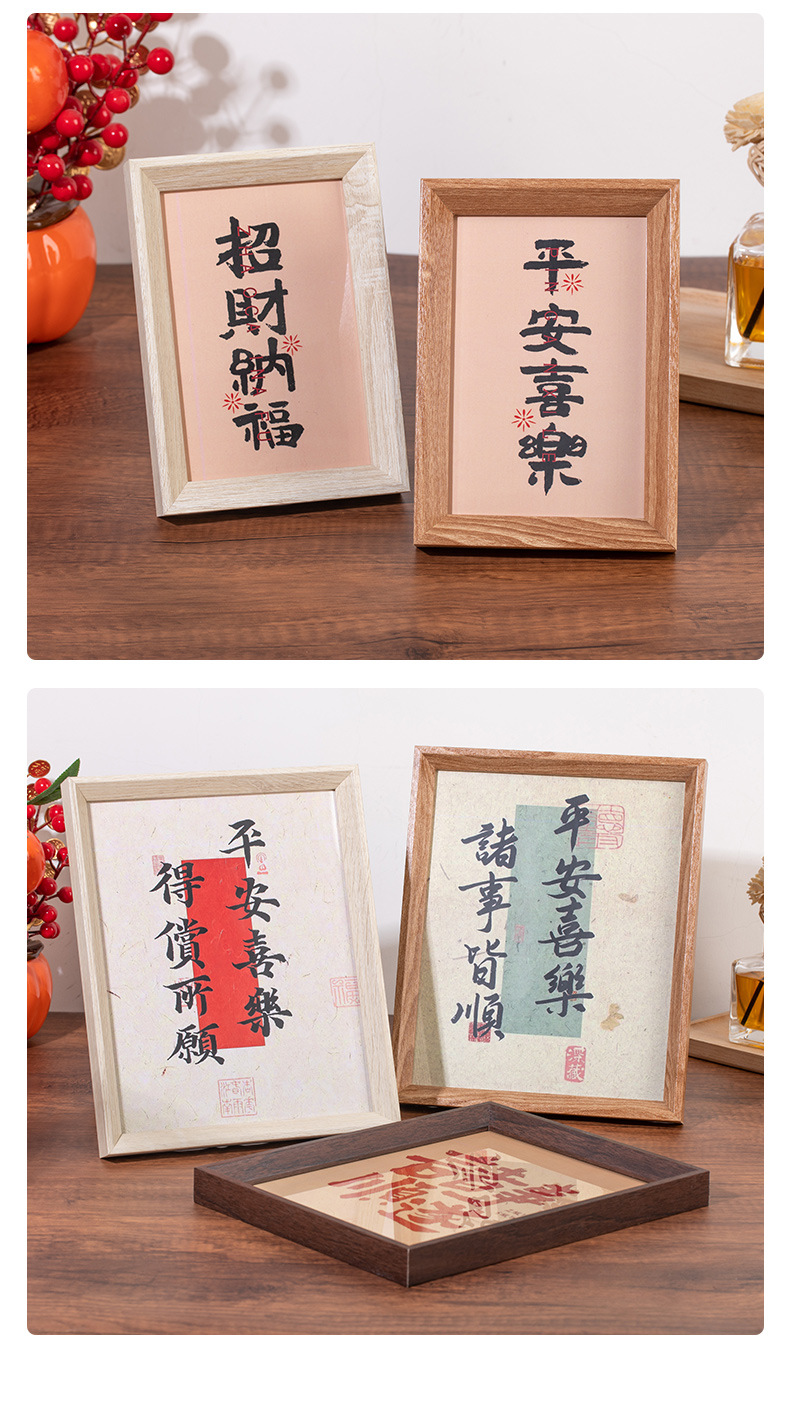 招財納福
平安喜樂
平安喜樂
得償所願
平安喜樂
諸事皆順
深藏